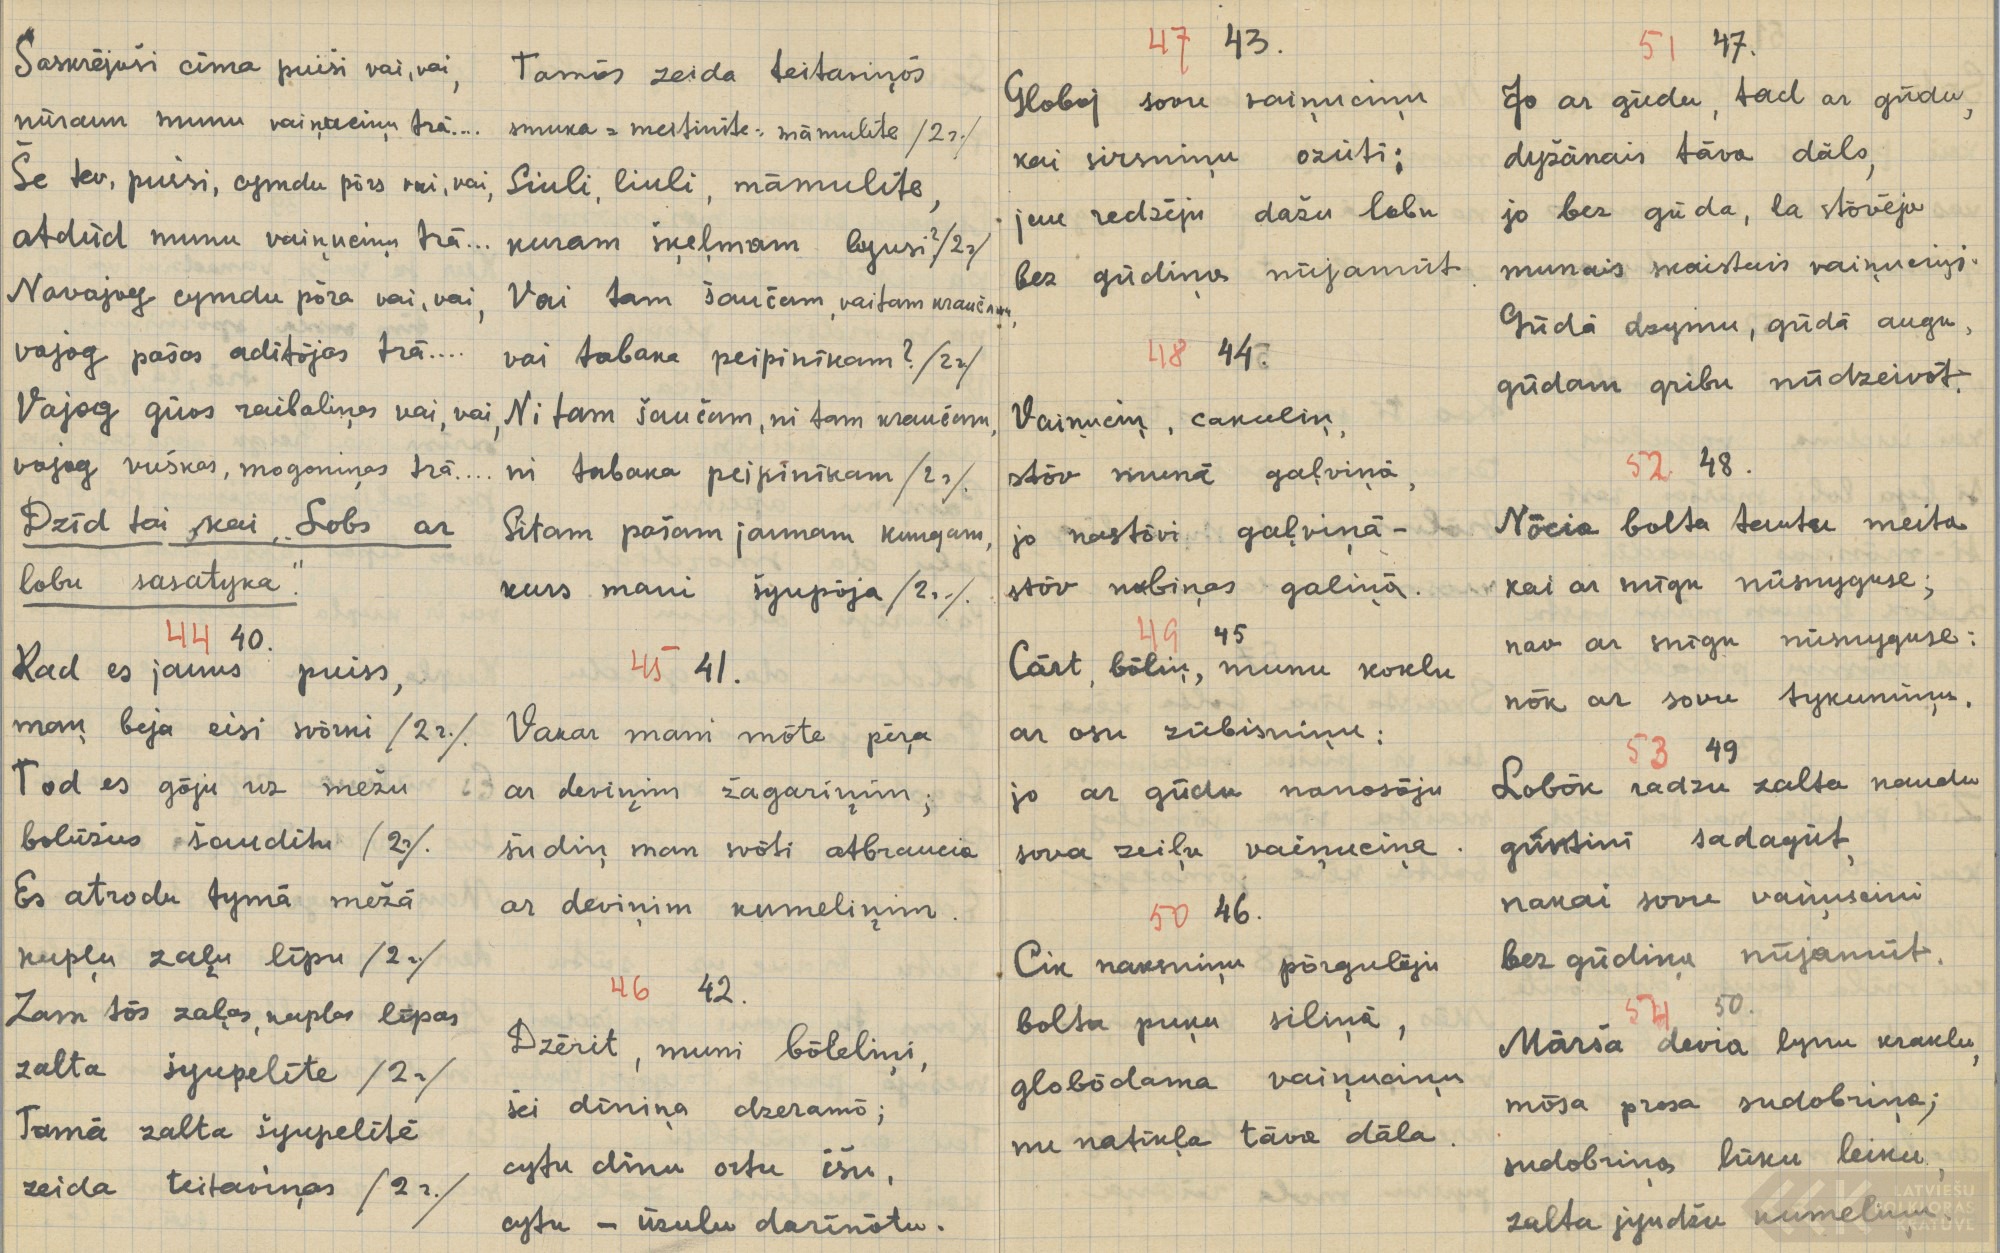 Saskrējuši cīma puiši vai, vai,
nūraun munu vaiņuciņu trā....
Še tev, puiši, cymdu pōrs vai, vai,
atdūd munu vaiņuciņu trā...
Navajog cymdu pōra vai, vai,
vajog pašas adītōjas trā....
Vajog gūos raibaliņas vai, vai,
vajog vuškas, mogoniņas trā....
Dzīd tai kai „Lobs ar
lobu sasatyka".
44 40.
Kad es jauns puiss,
maņ beja eisi svōrki /2 r./.
Tod es gōju uz mežu
bolūžus šaudītu /2 r/.
Es atrodu tymā mežā
kupļu zaļu līpu /2 r/
Zam tōs zaļas, kuplas līpas
zalta šyupelīte /2 r/
Tamā zalta šyupelītē
zeida teitaviņas /2 r./
Tamōs zeida teitaviņōs
smuka = mertinīte = māmulīte /2 r./
Liuli, liuli, māmulīte,
kuram šķeļmam byusi? /2 r/
Vai tam šaučam, vai tam kraučam,
vai tabaka peipinīkam? /2 r/
Ni tam šaučam, ni tam kraučam,
ni tabaka peipinīkam /2 r/.
Sitam pošam jaunam kungam,
kurs mani šyupōja /2 r./.
45 41.
Vakar mani mōte pēŗa
ar deviņim žagariņim;
šudiņ man svōti atbraucia
ar deviņim kumeliņim.
46 42.
Dzērit, muni bōleliņi,
šei dīniņa dzeramō;
cytu dīnu ortu īšu,
cytu – ūzulu darīnōtu.
47 43.
Globoj sovu vaiņuciņu
kai sirsniņu ozūti;
jau redzēju dažu labu
bez gūdiņa nūjamūt.
48 44.
Vaiņuciņ, cakuliņ,
stōv munā gaļviņā,
jo nastōvi gaļviņā –
stōv nabiņas galiņā.
49 45
Cārt, bōliņ, munu koklu
ar osu zūbisniņu:
jo ar gūdu nanosōju
sova zeiļu vaiņuciņa.
50 46.
Cik naksniņu pōrgulēju
bolta puķu siliņā,
globōdama vaiņuciņu
nu natikļa tāva dāla.
51 47.
Jo ar gūdu, tad ar gūdu,
dyžānais tāva dāls,
jo bez gūda, la stōvēja
munais skaistais vaiņuciņš.
Gūdā dzymu, gūdā augu,
gūdam gribu nūdzeivōt.
52. 48.
Nōcia bolta tautu meita
kai ar snīgu nūsnyguse;
nav ar snīgu nūsnyguse:
nōk ar sovu tykumiņu.
53 49
Lobōk radzu zalta naudu
guntiņī sadagūt,
nakai sovu vaiņuceini
bez gūdiņa nūjamūt.
54 50.
Mārša devia lynu kraklu,
mōsa prosa sudobriņa;
sudobriņa lūku leiku,
zalta jyudžu kumeliņu.
LATVIEŠU
FOLKLORAS
KRĀTUVE